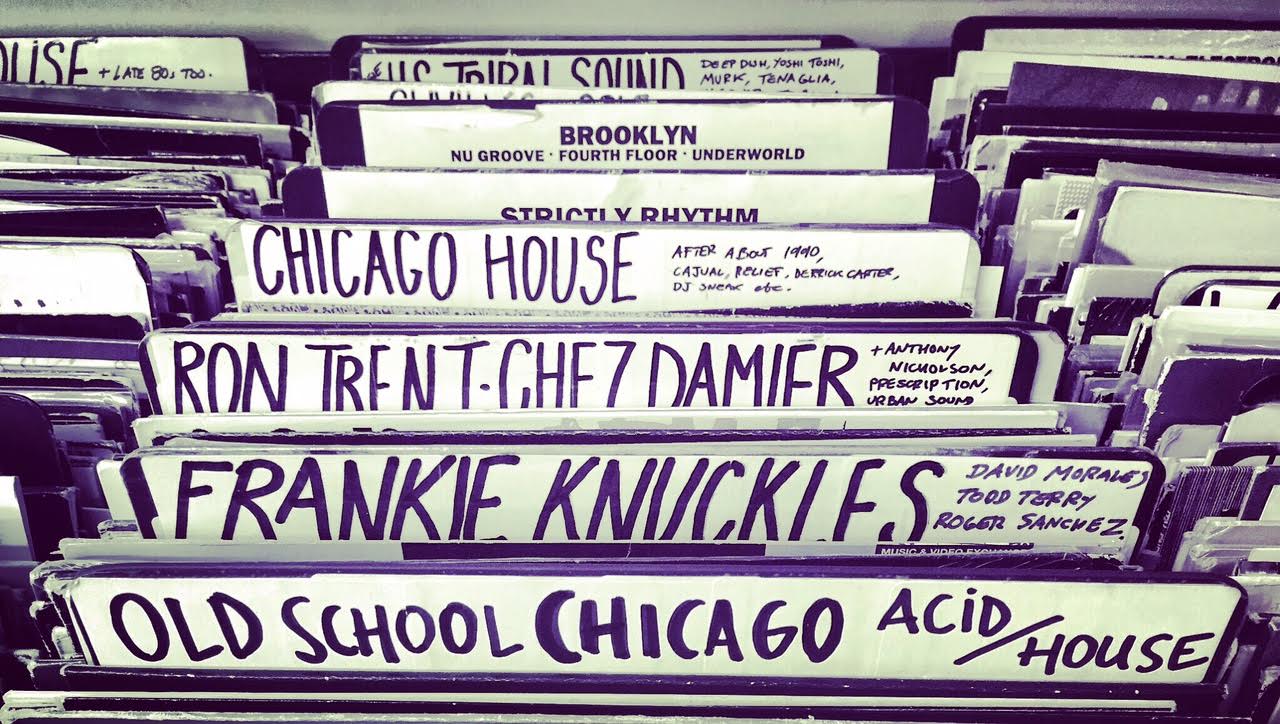 + LATE 80s TOO.
U.S. TRIBAL SOUND
DEEP DUH, YOSHI TOSHI,
MURK, TENAGLIA,
BROOKLYN
NU GROOVE · FOURTH FLOOR · UNDERWORLD
STRICTLY RHYTHM
CHICAGO HOUSE
AFTER ABOUT 1990,
CAJUAL, RELIEF, DERRICK CARTER,
DJ SNEAK etc.
RON TRENT · CHEZ DAMIER
+ ANTHONY
NICHOLSON,
PRESCRIPTION,
URBAN SOUND
FRANKIE KNUCKLES
DAVID MORALES
TODD TERRY
ROGER SANCHEZ.
MUSIC & VIDEO EXCHANGE
OLD SCHOOL CHICAGO ACiD/HOUSE